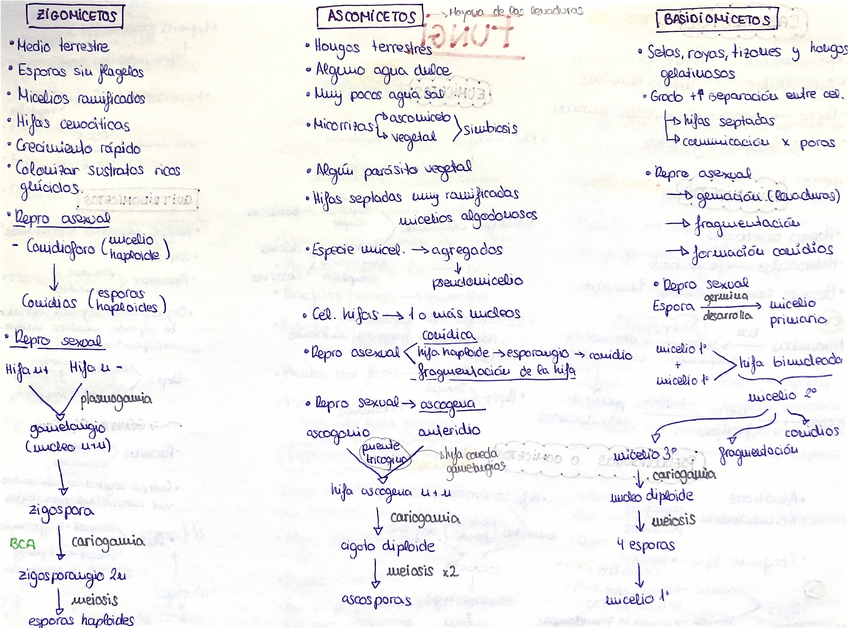 ZIGOMICETOS
• Medio terrestre
• Esporas sin flagelos
• Micelios ramificados
• Hifas cenocíticas
• Crecimiento rápido
• Colonizar sustratos ricos
glúcidos.
• Repro asexual
- Conidioforo (micelio haploide)
Conidias (esporas haploides)
• Repro sexual
Hifa n+ Hifa n -
plasmogamia
gametangio
(nucleo n+n)
zigospora
BCA cariogamia
zigosporangio 2n
meiosis
esporas haploides
ASCOMICETOS
→ Mayoría de las levaduras
FUNGI
• Hongos terrestres
• Alguno agua dulce
• Muy pocos agua sal
• Micorrizas → ascomiceto
→ vegetal > simbiosis
• Algún parásito vegetal
• Hifas septadas muy ramificadas
micelios algodonosos
• Especie unicel. → agregados
pseudomicelio
• Cel. hifas → 1 o más nucleos
conidica
• Repro asexual < hifa haploide → esporangio → conidio
fragmentación de la hifa
• Repro sexual → ascogena
ascogonio anteridio
puente tricogino
gametangios
hifa ascogena n+n
cariogamia
cigoto diploide
meiosis x2
ascosporas
BASIDIOMICETOS
• Setas, royas, tizones y hongos
gelatinosos
• Grado +↑ separación entre cel.
→ hifas septadas
→ comunicación x poros
• Repro asexual
→ gemación (levaduras)
→ fragmentación
→ formación conidios
• Repro sexual
Espora germina desarrolla → micelio
primario
micelio 1º
+
micelio 1º
hifa binucleada
micelio 2º
micelio 3º fragmentación conidios
cariogamia
nucleo diploide
meiosis
4 esporas
micelio 1º